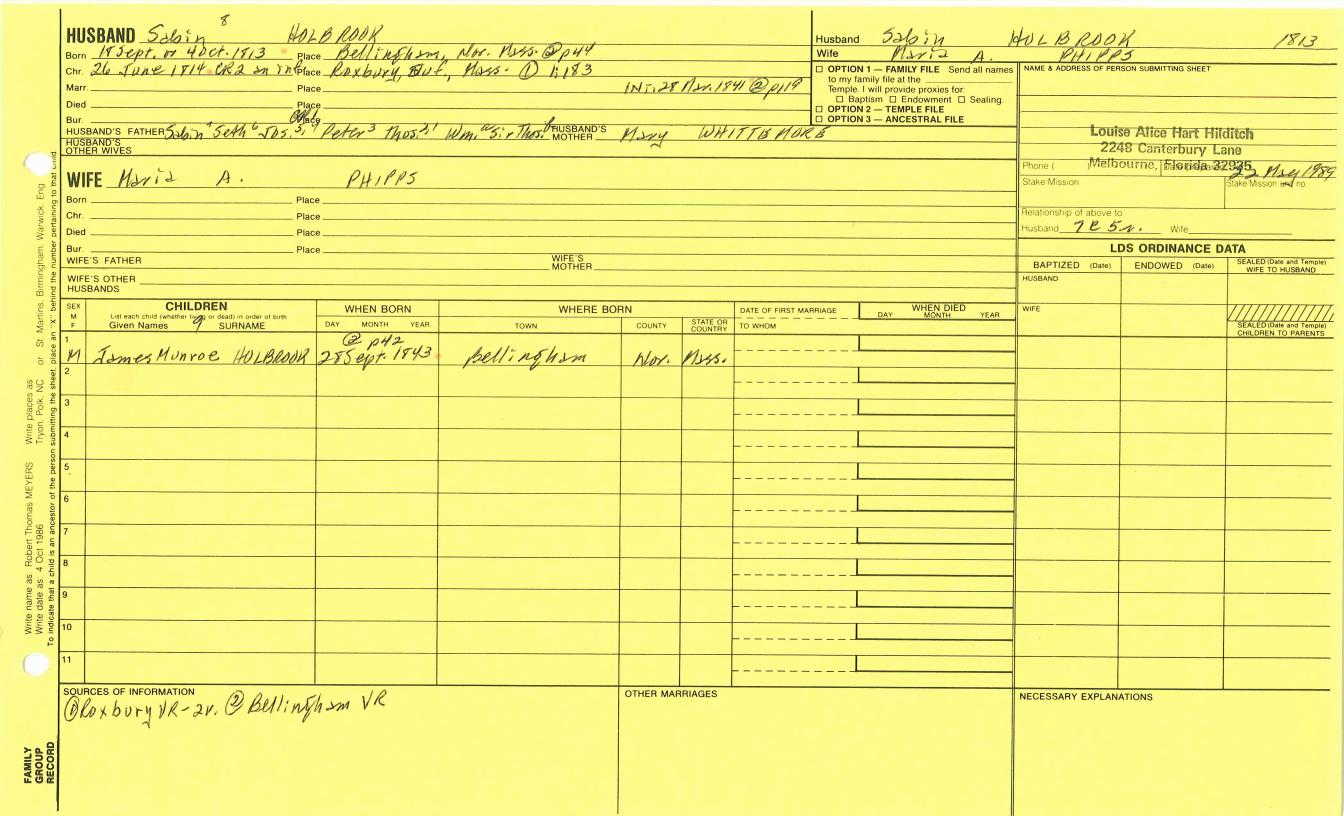 HUSBAND Sabin 8 HOLBROOK
Born 18 Sept. or 4 Oct. 1813 Place Bellingham, Nor. Mass. ② p44
Chr. 26 June 1814. CR2 an inf. Place Roxbury, Suf, Mass. ① 1;183
Marr. Place INT. 28 Mar. 1841 ② p119
Died Place
Bur. Place
HUSBAND'S FATHER Sabin Seth 6 Jos. Peter 3 Thos. Wm. Sir Thos. HUSBAND'S MOTHER Mary WHITTEMORE
HUSBAND'S OTHER WIVES
WIFE Maria A. PHIPPS
Born Place
Chr. Place
Died Place
Bur. Place
WIFE'S FATHER WIFE'S MOTHER
WIFE'S OTHER HUSBANDS
Husband Sabin HOLBROOK 1813
Wife Maria A. PHIPPS
☐ OPTION 1 — FAMILY FILE Send all names
to my family file at the
Temple. I will provide proxies for:
☐ Baptism ☐ Endowment ☐ Sealing.
☐ OPTION 2 — TEMPLE FILE
☐ OPTION 3 — ANCESTRAL FILE
NAME & ADDRESS OF PERSON SUBMITTING SHEET
Louise Alice Hart Hilditch
2248 Canterbury Lane
Melbourne, Florida 32935
Phone ( 22 May 1989
Stake Mission Stake Mission no.
Relationship of above to
Husband 7C 5r. Wife
LDS ORDINANCE DATA
BAPTIZED (Date) ENDOWED (Date) SEALED (Date and Temple) WIFE TO HUSBAND
HUSBAND
WIFE
SEALED (Date and Temple) CHILDREN TO PARENTS
SEX M F CHILDREN WHEN BORN WHERE BORN DATE OF FIRST MARRIAGE WHEN DIED
List each child (whether living or dead) in order of birth
Given Names 9 SURNAME DAY MONTH YEAR TOWN COUNTY STATE OR COUNTRY TO WHOM DAY MONTH YEAR
1 ② p42
M James Munroe HOLBROOK 28 Sept. 1843 Bellingham Nor. Mass.
2
3
4
5
6
7
8
9
10
11
SOURCES OF INFORMATION
① Roxbury VR-2v. ② Bellingham VR
OTHER MARRIAGES
NECESSARY EXPLANATIONS
Write name as: Robert Thomas MEYERS Write places as: Tryon, Polk, NC or St. Martins, Birmingham, Warwick, Eng.
Write date as: 4 Oct 1986
To indicate that a child is an ancestor of the person submitting the sheet, place an "X" behind the number pertaining to that child.
FAMILY GROUP RECORD